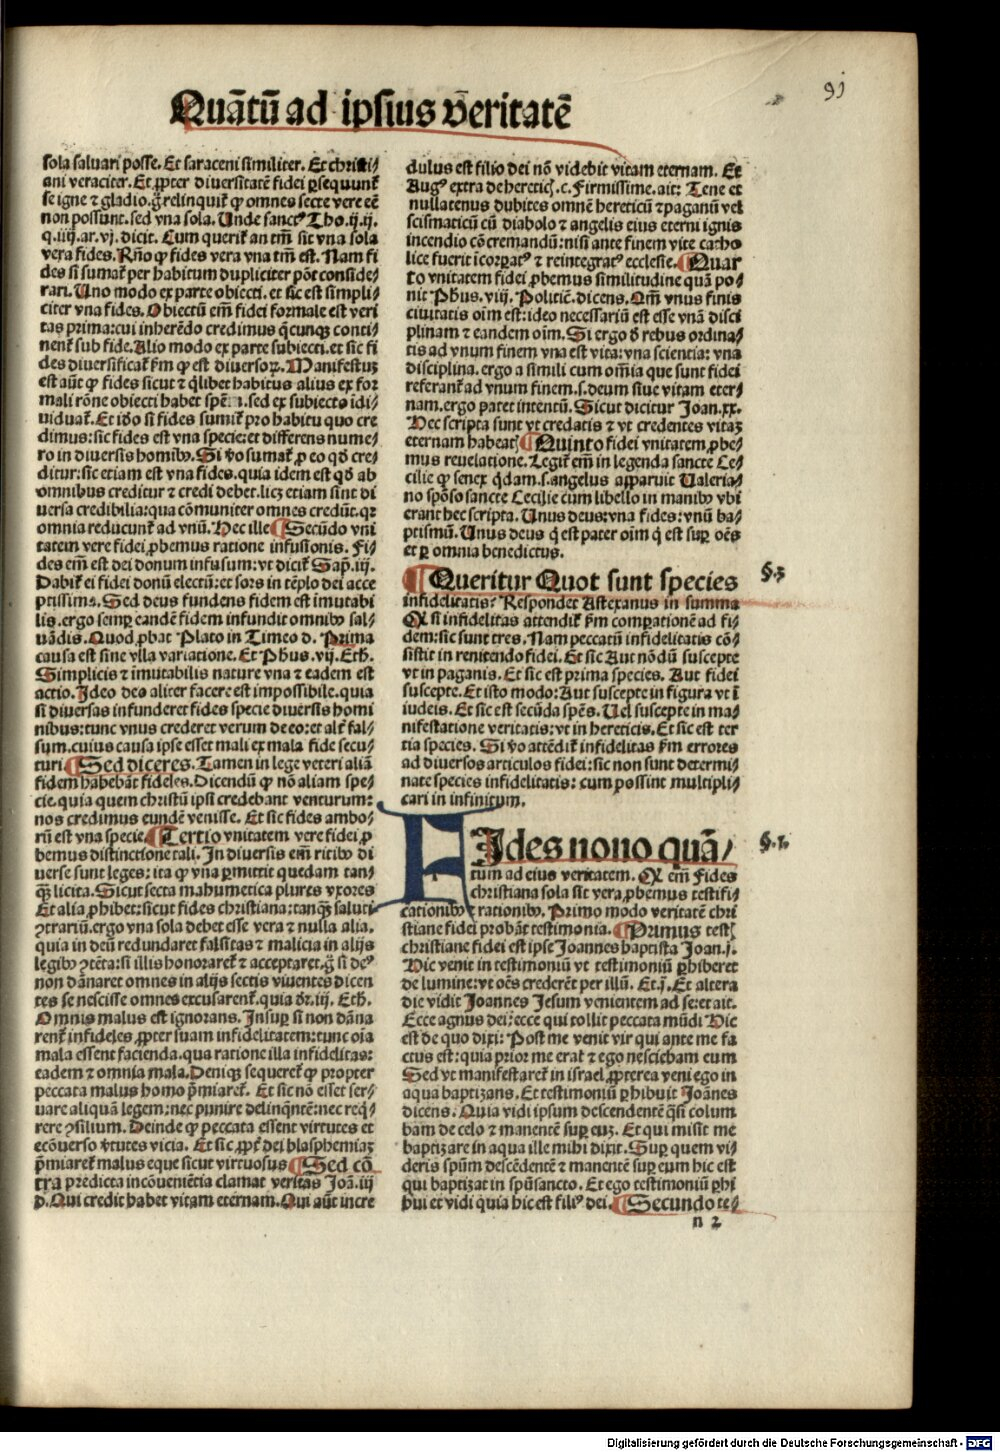 91
Quātū ad ipsius v̄eritatē
sola saluari posse. Et saraceni similiter. Et christi/
ani veraciter. Et ꝓpter diuersitatē fidei ꝑsequunt᷑
se igne ⁊ gladio. gͦ relinquit᷑ ꝙ omnes secte vere eē
non possunt. sed vna sola. Unde sanctꝰ Tho. ij. ij.
q. iiij. ar. vj. dicit. Cum querit᷑ an tm̄ sit vna sola
vera fides. Rn̄o ꝙ fides vera vna tm̄ est. Nam fi
des si sumat᷑ per habitum dupliciter pōt conside/
rari. Uno modo ex parte obiecti. et sic est simpli/
citer vna fides. Obiectū em̄ fidei formale est veri
tas prima: cui inherēdo credimus q̄cunqꝫ conti/
nent᷑ sub fide. Alio modo ex parte subiecti. et sic fi
des diuersificat᷑ ẜm ꝙ est diuersoꝝ. Manifestuꝫ
est aūt ꝙ fides sicut ⁊ q̄libet habitus alius ex for
mali rōne obiecti habet spēm. sed ex subiecto īdi/
viduat᷑. Et iđo si fides sumit᷑ pro habitu quo cre
dimus: sic fides est vna specie: et differens nume/
ro in diuersis homibꝫ. Si v̄o sumat᷑ ꝓ eo qđ cre/
ditur: sic etiam est vna fides. quia idem est qđ ab
omnibus creditur ⁊ credi debet. licꝫ etiam sint di
uersa credibilia: qua cōmuniter omnes credūt. qꝛ
omnia reducunt᷑ ad vnū. Hec ille ¶ Secūdo vni
tatem vere fidei ꝓbemus ratione infusionis. Fi/
des em̄ est dei donum infusum: vt dicit᷑ Sap̄. iij.
Dabit᷑ ei fidei donū electū: et sors in tēplo dei acce
ptissima. Sed deus fundens fidem est imutabi
lis. ergo semꝑ eandē fidem infundit omnibꝫ sal/
uādis. Quod ꝓbat Plato in Timeo d. Prima
causa est sine vlla variatione. Et Phus. vij. Eth.
Simplicis ⁊ imutabilis nature vna ⁊ eadem est
actio. Ideo deo aliter facere est impossibile. quia
si diuersas infunderet fides specie diuersis homi
nibus: tunc vnus crederet verum de eo: et alt̄ fal/
sum. cuius causa ipse esset mali ex mala fide secu/
turi. ¶ Sed diceres. Tamen in lege veteri aliā
fidem habebāt fideles. Dicendū ꝙ nō aliam spe/
cie. quia quem christū ipsi credebant venturum:
nos credimus eundē venisse. Et sic fides ambo/
rū est vna specie. ¶ Tertio vnitatem vere fidei ꝓ
bemus distinctione tali. In diuersis em̄ ritibꝫ di
uerse sunt leges: ita ꝙ vna ꝑmittit quedam tan/
qꝫ̄ licita. Sicut secta mahumetica plures vxores
Et alia ꝓhibet: sicut fides christiana: tanqꝫ̄ saluti
ꝯtrariū. ergo vna sola debet esse vera ⁊ nulla alia.
quia in deū redundaret falsitas ⁊ malicia in alijs
legibꝫ ꝯtēta: si illis honoraret᷑ ⁊ acceptaret. gͦ si deꝰ
non dānaret omnes in alijs sectis viuentes dicen
tes se nescisse omnes excusarent᷑. quia dr̄. iij. Eth.
Omnis malus est ignorans. Insuꝑ si non dāna
rent᷑ infideles ꝓpter suam infidelitatem: tunc oīa
mala essent facienda. qua ratione illa infidelitas:
eadem ⁊ omnia mala. Deniqꝫ sequeret᷑ ꝙ propter
peccata malus homo p̄miaret᷑. Et sic nō esset ser/
uare aliquā legem: nec punire delinq̄ntē: nec req̄/
rere ꝯsilium. Deinde ꝙ peccata essent virtutes et
ecōuerso v̄tutes vicia. Et sic ꝓpt̄ dei blasphemiaꝫ
p̄miaret᷑ malus eque sicut virtuosus ¶ Sed cō
tra predicta incōuenientia clamat veritas Joā. iij
d. Qui credit habet vitam eternam. Qui aūt incre
dulus est filio dei nō videbit vitam eternam. Et
Augꝰ extra de heretic̄. c. Firmissime. ait: Tene et
nullatenus dubites omnē hereticū ⁊ paganū vel
scismaticū cū diabolo ⁊ angelis eius eterni ignis
incendio cōcremandū: nisi ante finem vite catho
lice fuerit īcorꝑatꝰ ⁊ reintegratꝰ ecclesie. ¶ Quar
to vnitatem fidei ꝓbemus similitudine quā po/
nit Phus. viij. Politic̄. dicens. Qm̄ vnus finis
ciuitatis oīm est: ideo necessariū est esse vnā disci
plinam ⁊ eandem oīm. Si ergo đ rebus ordina/
tis ad vnum finem vna est vita: vna scientia: vna
disciplina. ergo a simili cum om̄ia que sunt fidei
referant᷑ ad vnum finem. s. deum siue vitam eter/
nam. ergo patet intentū. Sicut dicitur Joan. xx.
Hec scripta sunt vt credatis ⁊ vt credentes vitaꝫ
eternam habeatꝭ ¶ Quinto fidei vnitatem ꝓbe/
mus reuelatione. Legit᷑ em̄ in legenda sancte Ce/
cilie ꝙ senex q̇dam. s. angelus apparuit Valeria/
no spōso sancte Cecilie cum libello in manibꝫ vbi
erant hec scripta. Unus deus: vna fides: vnū ba/
ptismū. Unus deus q̇ est pater oīm q̇ est suꝑ oēs
et ꝑ omnia benedictus.
¶ Queritur Quot sunt species
§.3
infidelitatis? Respondet Astexanus in summa
Qꝫ si infidelitas attendit᷑ ẜm comꝑationē ad fi/
dem: sic sunt tres. Nam peccatū infidelitatis cō/
sistit in renitendo fidei. Et sic Aut nōdū suscepte
vt in paganis. Et sic est prima species. Aut fidei
suscepte. Et isto modo: Aut suscepte in figura vt ī
iudeis. Et sic est secūda spēs. Uel suscepte in ma/
nifestatione veritatis: vt in hereticis. Et sic est ter
tia species. Si v̄o attēdit᷑ infidelitas ẜm errores
ad diuersos articulos fidei: sic non sunt determi/
nate species infidelitatis: cum possint multipli/
cari in infinitum.
FIdes nono quā/
§.1.
tum ad eius veritatem. Qꝫ em̄ Fides
christiana sola sit vera ꝓbemus testifi/
cationibꝫ ⁊ rationibꝫ. Primo modo veritatē chri
stiane fidei probāt testimonia. ¶ Primus testꝭ
christiane fidei est ipse Joannes baptista Joan. j.
Hic venit in testimoniū vt testimoniū ꝑhiberet
de lumine: vt oēs crederēt per illū. Et. j. Et altera
die vidit Joannes Jesum venientem ad se: et ait.
Ecce agnus dei: ecce qui tollit peccata mūdi Hic
est de quo dixi: Post me venit vir qui ante me fa
ctus est: quia prior me erat ⁊ ego nesciebam eum
Sed vt manifestaret᷑ in israel ꝓpterea veni ego in
aqua baptizans. Et testimoniū ꝑhibuit Joānes
dicens. Quia vidi ipsum descendentē q̄si colum
bam de celo ⁊ manentē suꝑ euꝫ. Et qui misit me
baptizare in aqua ille mihi dixit. Suꝑ quem vi/
deris spūm descēdentē ⁊ manentē suꝑ eum hic est
qui baptizat in spūsancto. Et ego testimoniū ꝑhi
bui et vidi quia hic est filiꝰ dei. ¶ Secundo te/
n 2
Digitalisierung gefördert durch die Deutsche Forschungsgemeinschaft - DFG